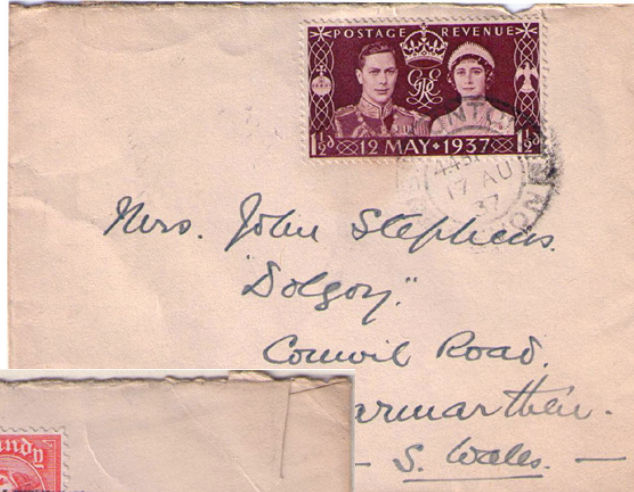 POSTAGE REVENUE
1½d 12 MAY 1937 1½d
17 AU
37
Mrs. John Stephens.
"Dolgoy."
Conwil Road.
armarthen.
S. Wales.